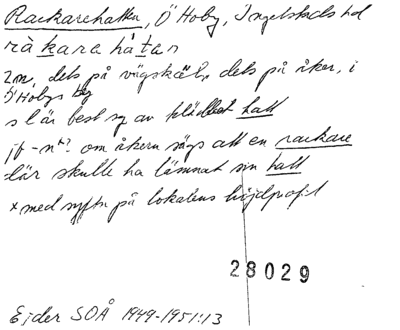 Rackarehatten, Ö Hoby, Ingelstads hd
räkarehåtan
2 m, dels på vägskäl, dels på åker, i
Ö Hobys by
s lär best sg av klädlet hatt
jf -n om åkern sägs att en rackare
lär skulle ha lämnat sin hatt
× med syftn på lokalens höjdprofil
28029
Ejder SOÅ 1949-1951:13